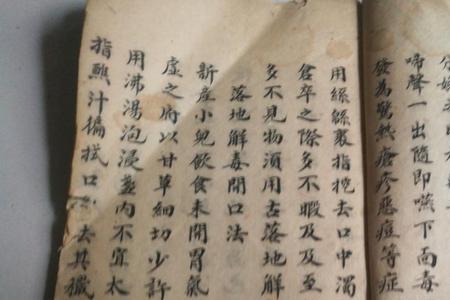 啼聲一出隨即嚥下而毒
發為驚熱瘡疹惡痘等症
用絲緜裹指挖去口中濁
倉卒之際多不暇及及至
多不見物須用古落地解
落地解毒開口法
新產小兒飲食未開胃氣
虛之府以甘草細切少許
用沸湯泡浸盞內不宜太
指汁徧拭口去其穢